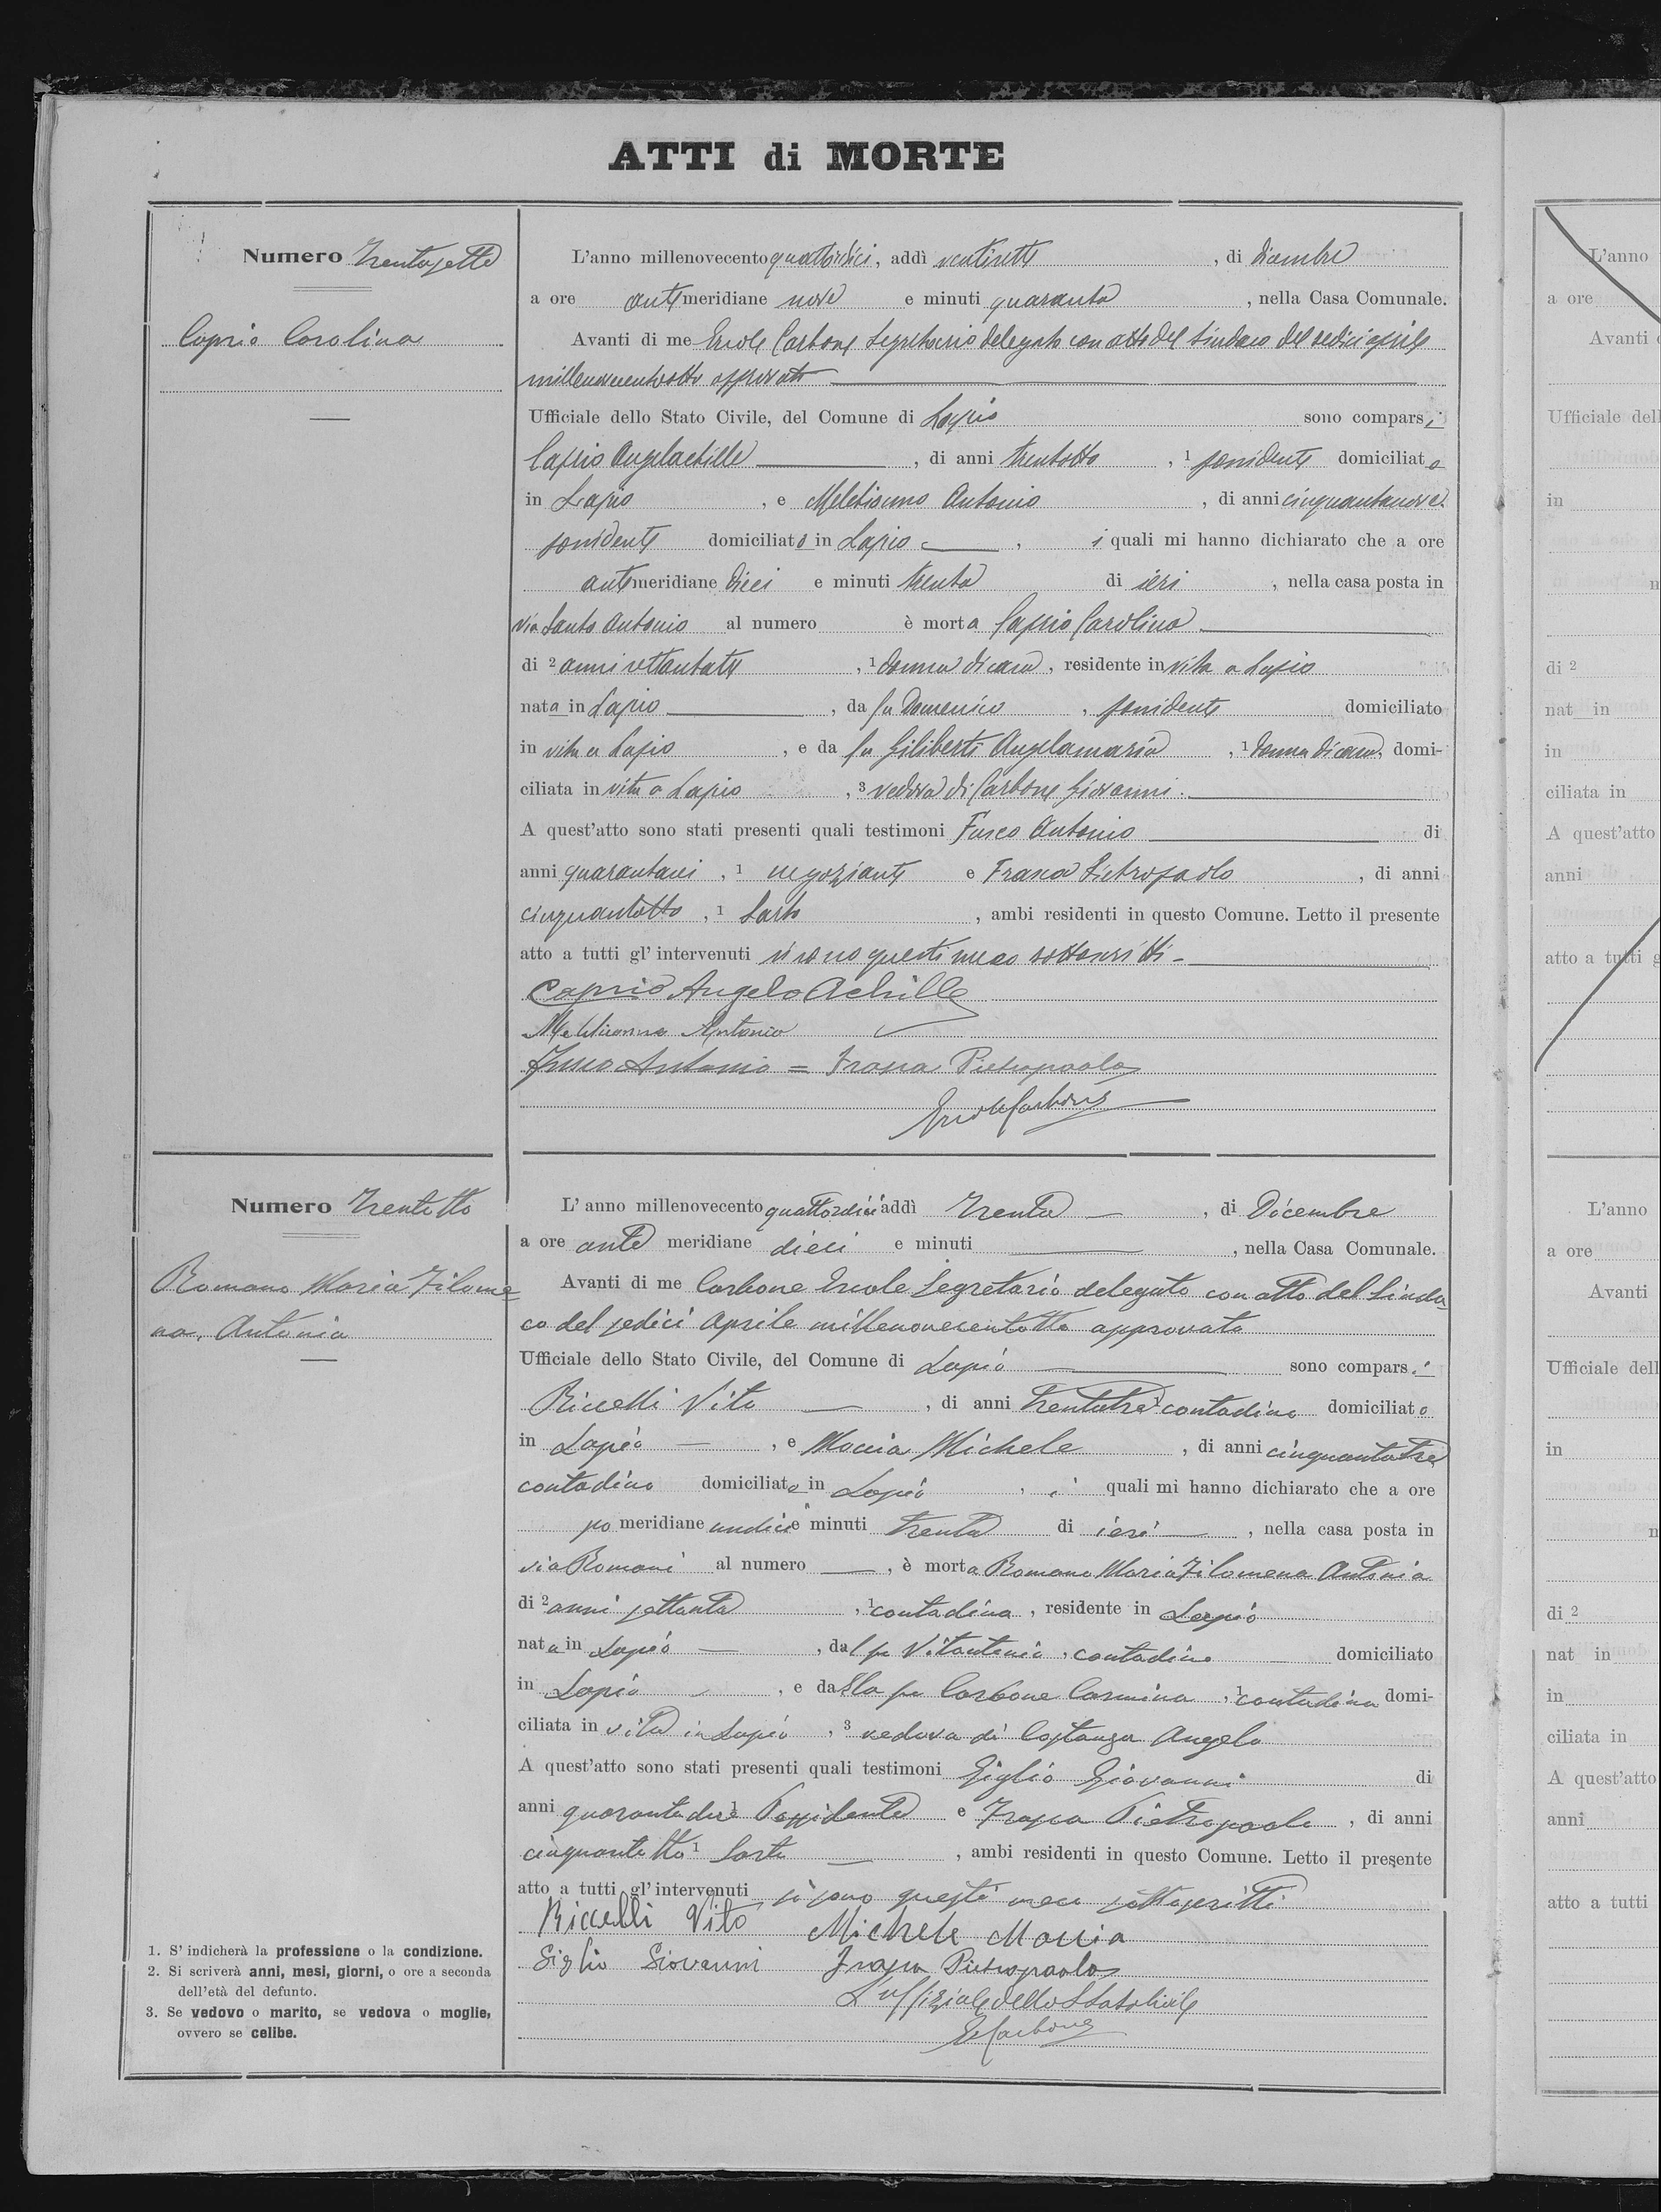 ATTI di MORTE
Numero Trentasette
Caprio Carolina
L'anno millenovecento quattordici, addì ventisette, di Dicembre
a ore antimeridiane nove e minuti quaranta, nella Casa Comunale.
Avanti di me Ercole Carbone Segretario delegato con atto del Sindaco del sedici aprile
millenovecentotto approvato
Ufficiale dello Stato Civile, del Comune di Lapio sono comparsi
Caprio Angelachille, di anni trentotto, 1 possidente domiciliato
in Lapio, e Meletionno Antonio, di anni cinquantanove
possidente domiciliato in Lapio, i quali mi hanno dichiarato che a ore
antimeridiane dieci e minuti trenta di ieri, nella casa posta in
via Santo Antonio al numero è morta Caprio Carolina
di 2 anni settantatre, 1 donna di casa, residente in vita a Lapio
nata in Lapio, da fu Domenico, possidente domiciliato
in vita a Lapio, e da fu Giliberti Angelamaria, 1 donna di casa, domi-
ciliata in vita a Lapio, 3 vedova di Carbone Giovanni.
A quest'atto sono stati presenti quali testimoni Fusco Antonio di
anni quarantasei, 1 negoziante e Frasca Pietropaolo, di anni
cinquantotto, 1 Sarto, ambi residenti in questo Comune. Letto il presente
atto a tutti gl'intervenuti si sono questi meco sottoscritti -
Caprio Angelo Achille
Antonio
Fusco Antonio = Frasca Pietropaolo
Ercole Carbone
Numero Trentotto
Romano Maria Filome
na, Antonia
L'anno millenovecento quattordici addì Trenta, di Dicembre
a ore ante meridiane dieci e minuti, nella Casa Comunale.
Avanti di me Carbone Ercole Segretario delegato con atto del Sinda
co del sedici Aprile millenovecentotto approvato
Ufficiale dello Stato Civile, del Comune di Lapio sono comparsi
Riccelli Vito, di anni trentatre contadino domiciliato
in Lapio, e Moccia Michele, di anni cinquantatre
contadino domiciliato in Lapio, i quali mi hanno dichiarato che a ore
po meridiane undici e minuti trenta di ieri, nella casa posta in
via Romani al numero, è morta Romano Maria Filomena Antonia
di 2 anni settanta, 1 contadina, residente in Lapio
nata in Lapio, dal fu Vitantonio, contadino domiciliato
in Lapio, e dalla fu Carbone Carmina, 1 contadina domi-
ciliata in vita in Lapio, 3 vedova di Costanza Angelo
A quest'atto sono stati presenti quali testimoni Giglio Giovanni di
anni quarantadue 1 Possidente e Frasca Pietropaolo, di anni
cinquantotto 1 Sarto, ambi residenti in questo Comune. Letto il presente
atto a tutti gl'intervenuti si sono questi meco sottoscritti
Riccelli Vito Michele Moccia
Giglio Giovanni Frasca Pietropaolo
L'uffiziale dello Stato Civile
E Carbone
1. S'indicherà la professione o la condizione.
2. Si scriverà anni, mesi, giorni, o ore a seconda
dell'età del defunto.
3. Se vedovo o marito, se vedova o moglie,
ovvero se celibe.
L'anno
a ore
Avanti
Ufficiale dell
in
di 2
nat in
in
ciliata in
A quest'atto
anni
atto a tutti g
L'anno
a ore
Avanti
Ufficiale dell
in
di 2
nat in
in
ciliata in
A quest'atto
anni
atto a tutti